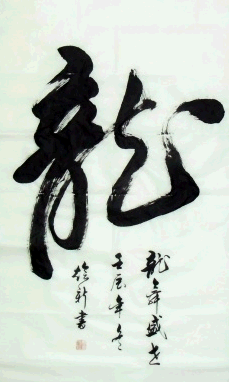 龍
龍年盛世
壬辰年冬
新書